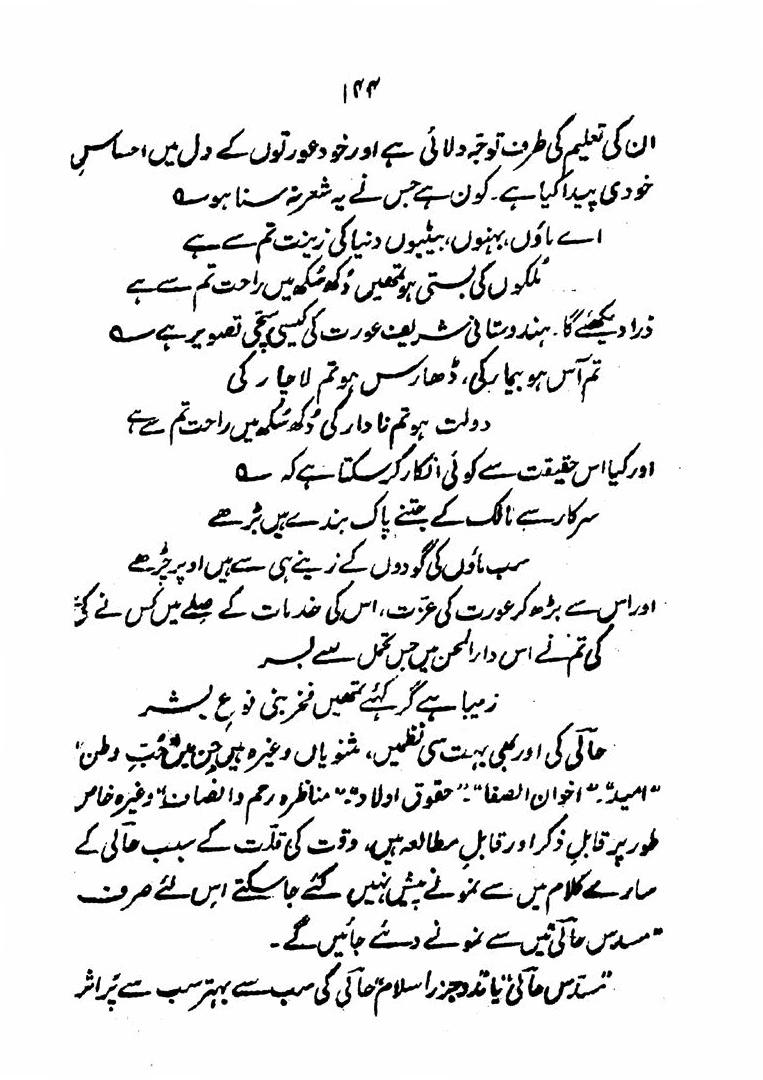 ۱۴۴
ان کی تعلیم کی طرف توجہ دلائی ہے اور خود عورتوں کے دل میں احساسِ
خودی پیدا کیا ہے۔ کون ہے جس نے یہ شعر نہ سنا ہو ؎
اے ماؤں، بہنوں، بیٹیوں دنیا کی زینت تم سے ہے
مُلکوں کی بستی ہو تمھیں دُکھ سُکھ میں راحت تم سے ہے
ذرا دیکھئے گا۔ ہندوستانی شریف عورت کی کیسی سچّی تصویر ہے ؎
تم آس ہو بیمار کی، ڈھارس ہو تم لاچار کی
دولت ہو تم نادار کی دُکھ سُکھ میں راحت تم سے ہے
اور کیا اس حقیقت سے کوئی انکار کر سکتا ہے کہ ؎
سرکار سے مالک کے جتنے پاک بندے ہیں بڑھے
سب ماؤں کی گودوں کے زینے ہی سے ہیں اوپر چڑھے
اور اس سے بڑھ کر عورت کی عزّت، اس کی خدمات کے صلے میں کس نے کی
کی تم نے اس دارالمحن میں جس تحمل سے بسر
زیبا ہے گر کہئے تمھیں فخرِ بنی نوعِ بشر
حالی کی اور بھی بہت سی نظمیں، مثنویاں وغیرہ ہیں جن میں "حُبِ وطن"
"امید"۔ "اخوان الصفا"۔ "حقوق اولاد"۔ "مناظرہ رحم و انصاف" وغیرہ خاص
طور پر قابلِ ذکر اور قابلِ مطالعہ ہیں، وقت کی قلّت کے سبب حالی کے
سارے کلام میں سے نمونے پیش نہیں کئے جا سکتے اس لئے صرف
"مسدس حالی" میں سے نمونے دئے جائیں گے۔
"مسدّس حالی" یا "مدوجزر اسلام" حالی کی سب سے بہتر سب سے پُر اثر